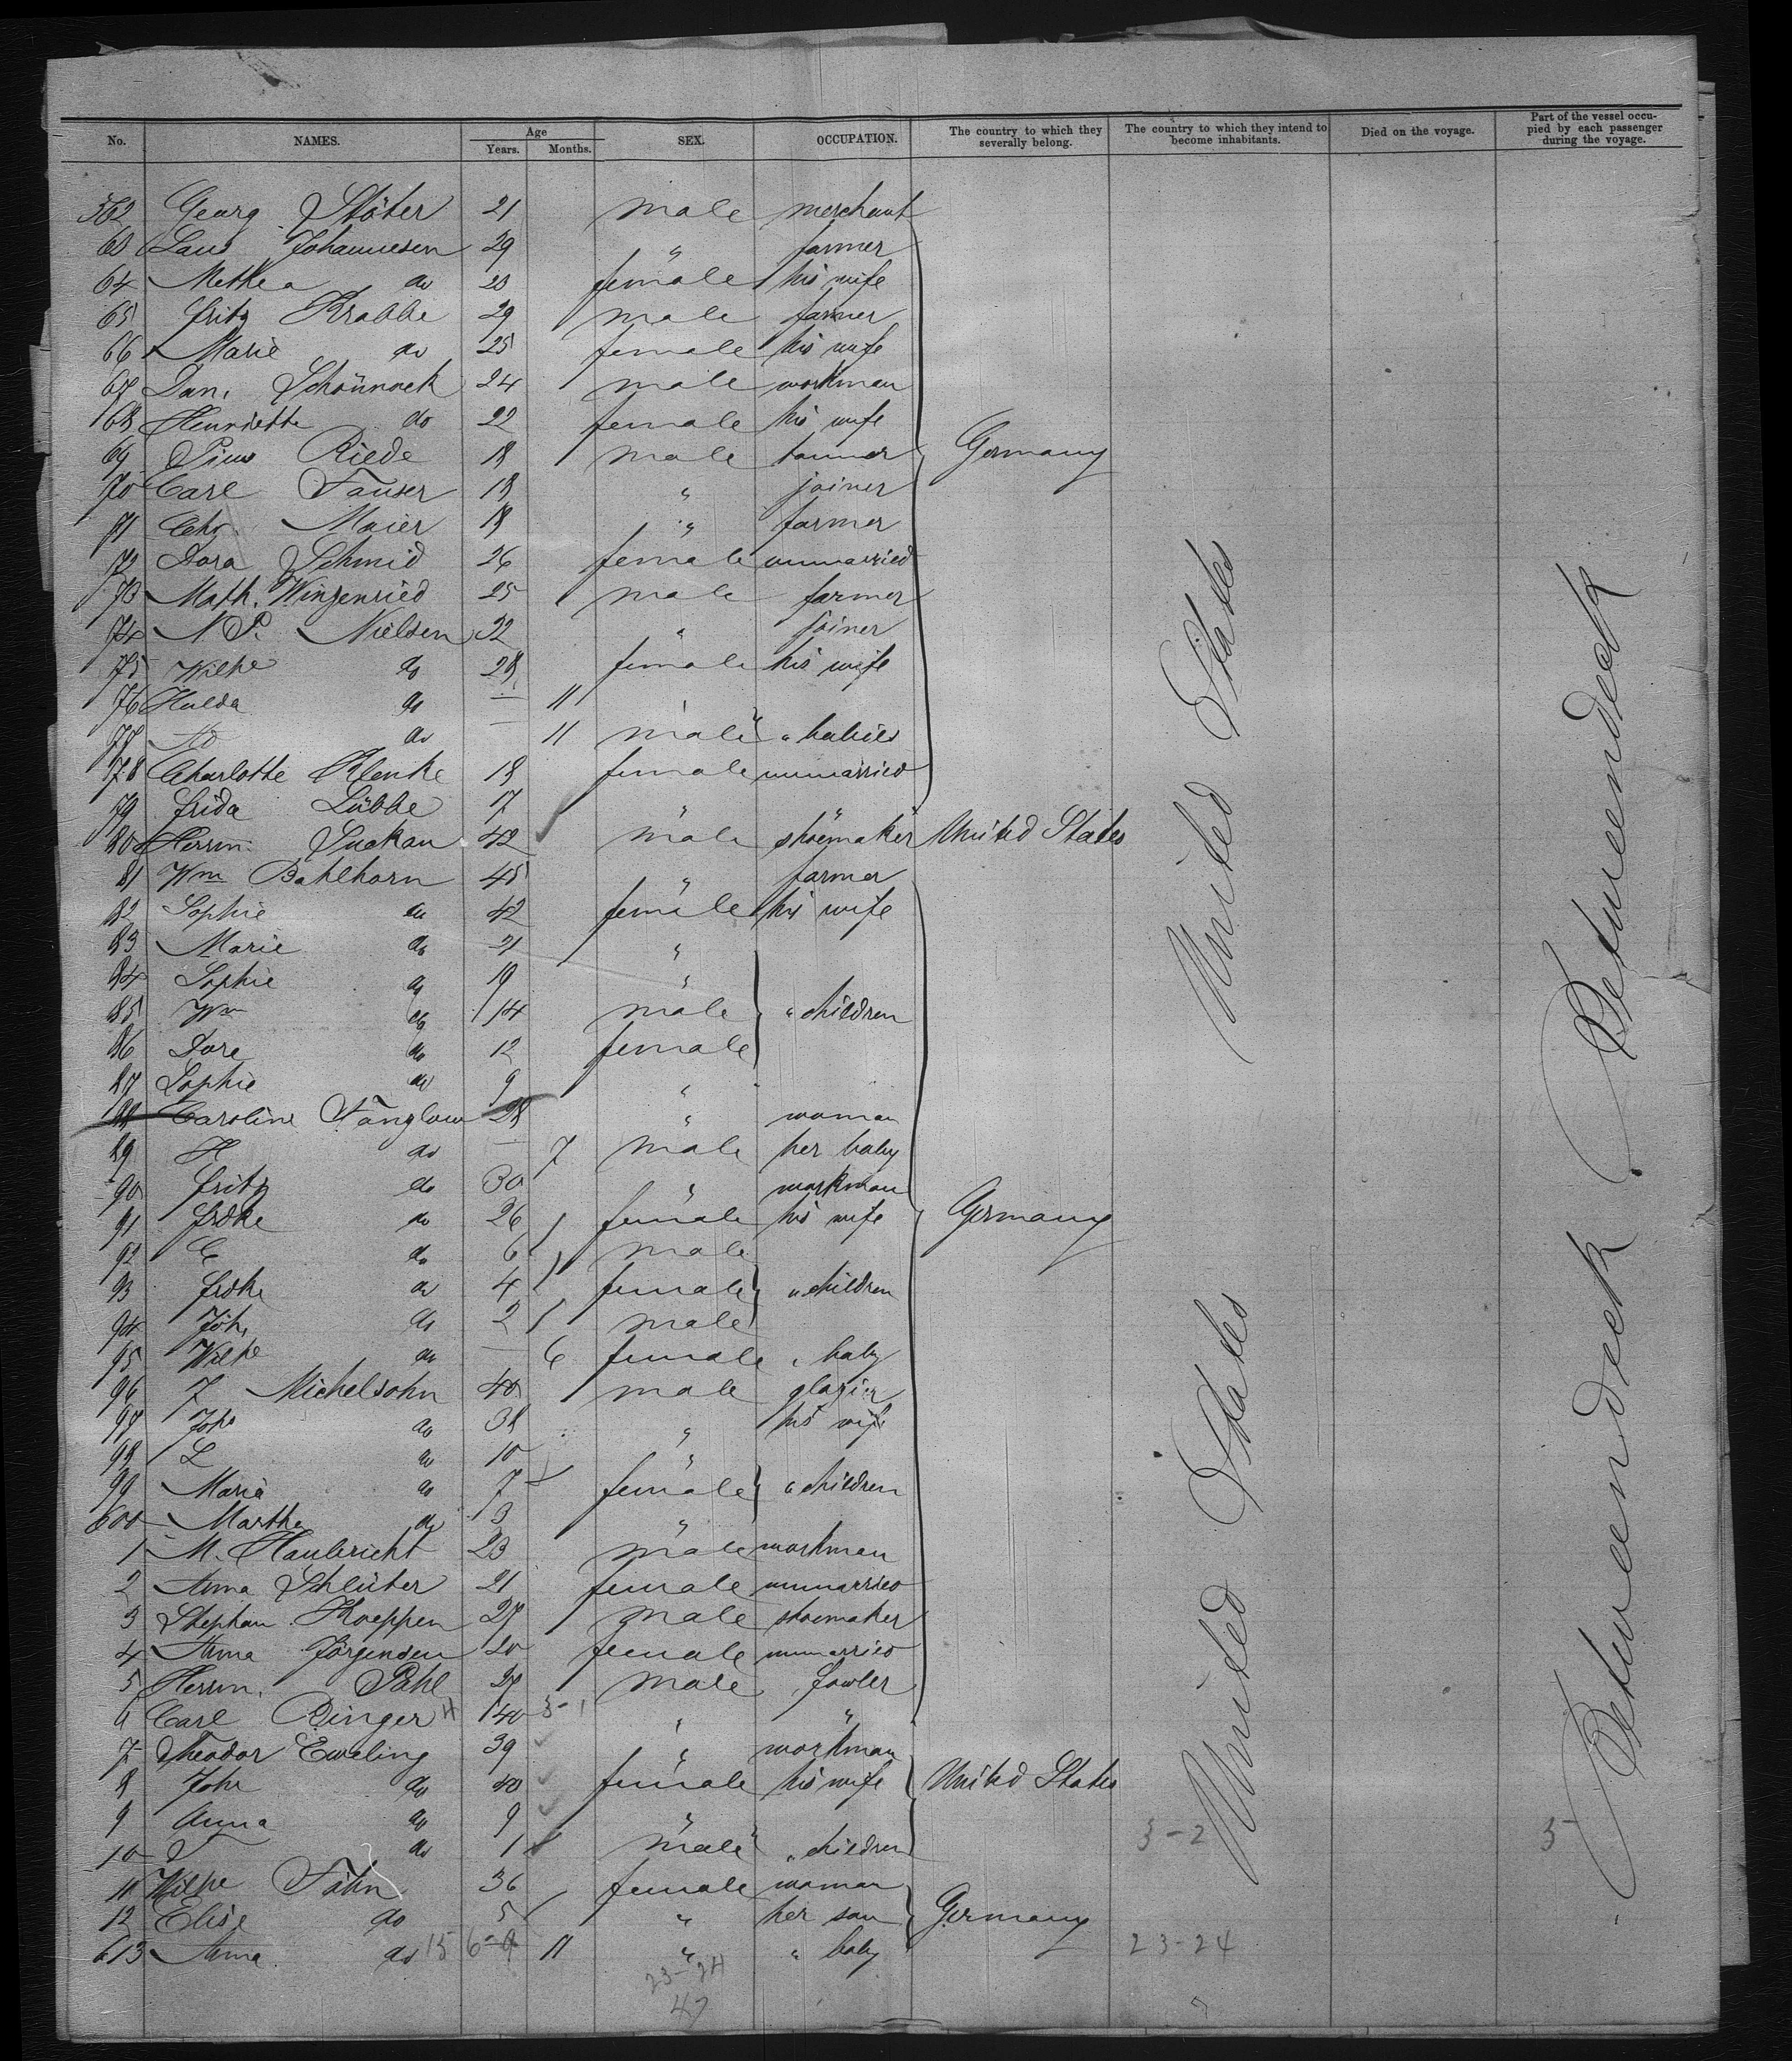 No. NAMES. Age Years. Months. SEX. OCCUPATION. The country to which they severally belong. The country to which they intend to become inhabitants. Died on the voyage. Part of the vessel occupied by each passenger during the voyage.
562 Georg Stöter 21 male merchant
63 Laus Johannesen 29 " farmer
64 Methea do 23 female his wife
65 Fritz Krabbe 29 male farmer
66 Marie do 25 female his wife
67 Dan. Schönrock 24 male workman
68 Henriette do 22 female his wife
69 Pius Riede 18 male tanner Germany
70 Carl Fauser 18 " joiner
71 Chr. Maier 18 " farmer
72 Dora Schmid 26 female unmarried
73 Math. Winzenried 25 male farmer
74 N P. Nielsen 32 " joiner
75 Wilhe do 28 female his wife
76 Hulda do — 11
77 do — 11 male " babies
78 Charlotte Klenke 18 female unmarried
79 Frida Lübbe 17 " "
80 Herrm. Suckau 42 male shoemaker United States
81 Wm Bahlhorn 45 " farmer
82 Sophie do 42 female his wife
83 Marie do 21 "
84 Sophie do 19 "
85 Wm do 14 male " children
86 Dore do 12 female
87 Sophie do 9 "
88 Caroline Fanglow 28 " woman
89 H do — 7 male her baby
90 Fritz do 30 " workman
91 Frdke do 26 female his wife Germany
92 C do 6 male
93 Frdke do 4 female " children
94 Joh. do 2 male
95 Wilhe do — 6 female " baby
96 J Michelsohn 40 male glazier
97 Johe do 38 " his wife
98 L do 10 "
99 Maria do 7 female " children
600 Martha do 3 "
1 M. Haubricht 23 male workman
2 Anna Schlüter 21 female unmarried
3 Stephan Koeppen 27 male shoemaker
4 Anna Jörgensen 20 female unmarried
5 Herrm. Pahl 27 male fowler
6 Carl Ringer 40 " "
7 Theodor Eweling 39 " workman
8 Johe do 40 female his wife United States
9 Anna do 9 "
10 do 1 male " children
11 Wilhe Fähn 36 female woman
12 Elise do 5 " her son Germany
613 Anna do 11 " baby
United States
United States
Betweendeck
Betweendeck
3-2
5
15 6-9
23-24
23-24
47